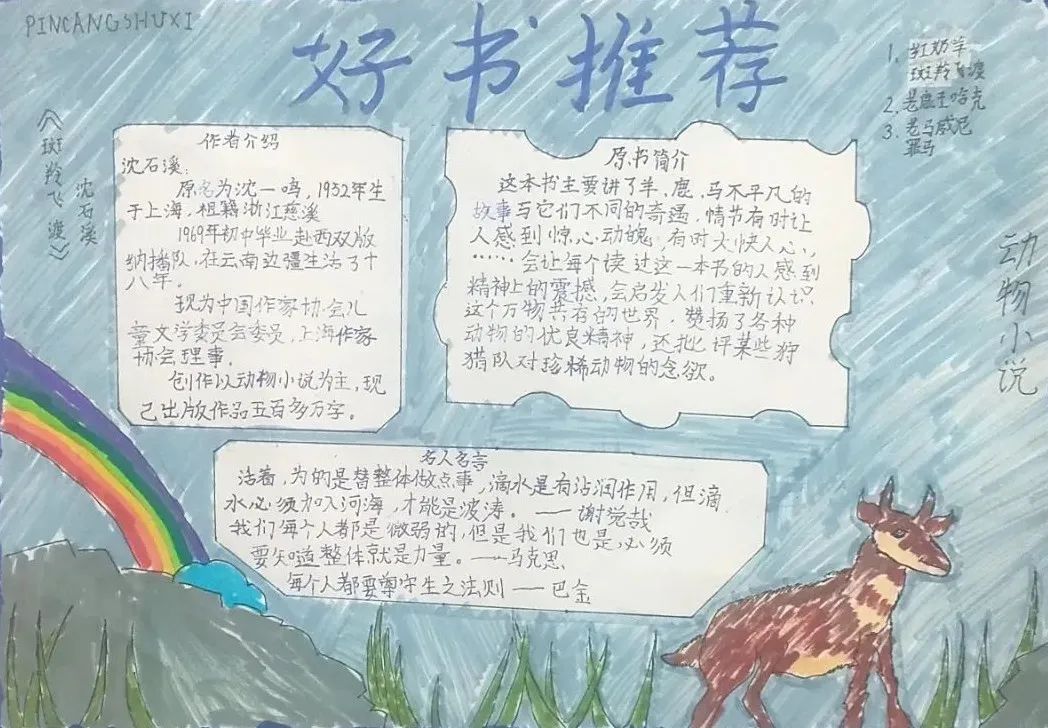 PINCANGSHUXI
好书推荐
1. 红奶羊
斑羚飞渡
2. 老鹿王哈克
3. 老马威尼
罪马
《斑羚飞渡》
沈石溪
动物小说
作者介绍
沈石溪:
原名为沈一鸣,1952年生
于上海,祖籍浙江慈溪
1969年初中毕业赴西双版
纳插队,在云南边疆生活了十
八年。
现为中国作家协会儿
童文学委员会委员,上海作家
协会理事。
创作以动物小说为主,现
已出版作品五百多万字。
原书简介
这本书主要讲了羊、鹿、马不平凡的
故事与它们不同的奇遇,情节有时让
人感到惊心动魄,有时大快人心,
……会让每个读过这一本书的人感到
精神上的震撼,会启发人们重新认识
这个万物共有的世界,赞扬了各种
动物的优良精神,还批评某些狩
猎队对珍稀动物的念欲。
名人名言
活着,为的是替整体做点事,滴水是有沾润作用,但滴
水必须加入河海,才能是波涛。——谢觉哉
我们每个人都是微弱的,但是我们也是,必须
要知道整体就是力量。——马克思
每个人都要遵守生之法则——巴金